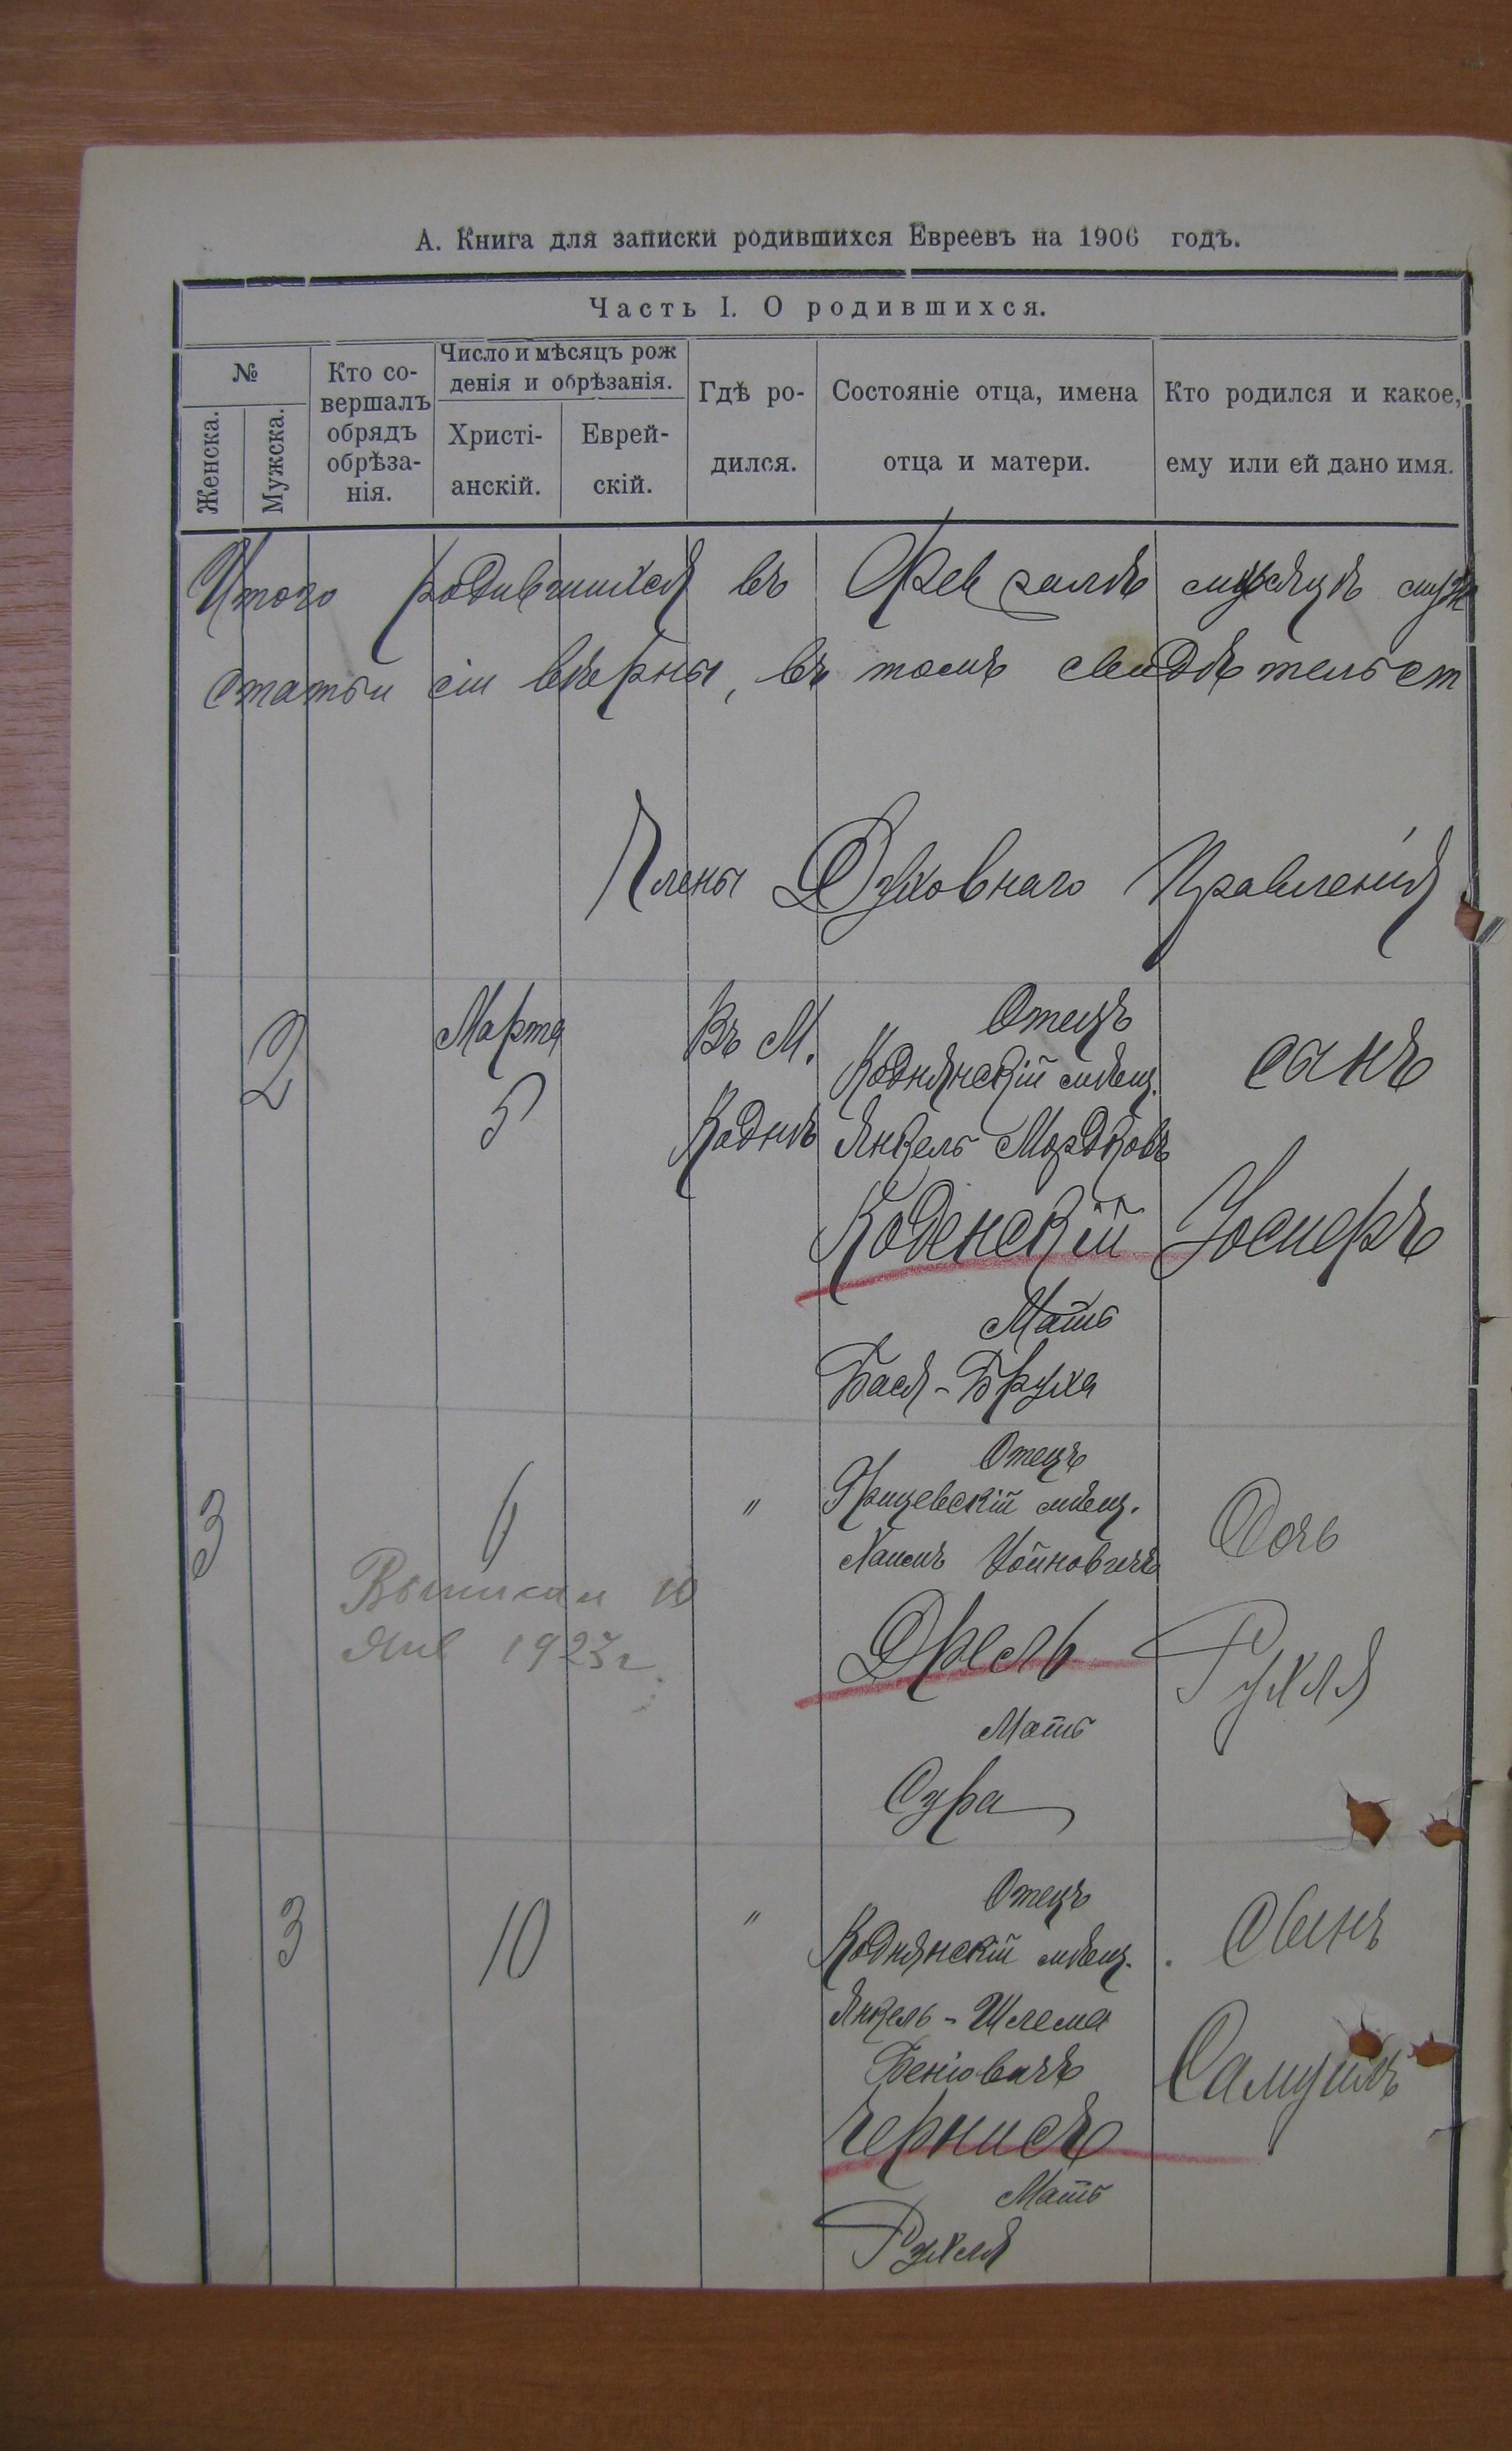 А. Книга для записки родившихся Евреевъ на 1906 годъ.
Часть I. О родившихся.
№
Женска.
Мужска.
Кто со-
вершалъ
обрядъ
обрѣза-
нія.
Число и мѣсяцъ рож
денія и обрѣзанія.
Христі-
анскій.
Еврей-
скій.
Гдѣ ро-
дился.
Состояніе отца, имена
отца и матери.
Кто родился и какое,
ему или ей дано имя.
Итого родившихся въ Февралѣ мѣсяцѣ муж
статьи сіи вѣрны, въ томъ свидѣтельст
Члены Духовнаго Правленія
2
Марта
5
Въ М.
Коднѣ
Отецъ
Коднянскій мѣщ.
Янкель Мордковъ
Коденскій
Мать
Бася-Бруха
сынъ
Іосифъ
3
6
Выписан 10
Янв 1923 г
"
Отецъ
мѣщ.
Хаимъ Йойновичъ
Дрель
Мать
Сура
Дочь
Рухля
3
10
"
Отецъ
Коднянскій мѣщ.
Янкель-Шлема
Беніовичъ
Чернисъ
Мать
Рухля
Сынъ
Самуилъ